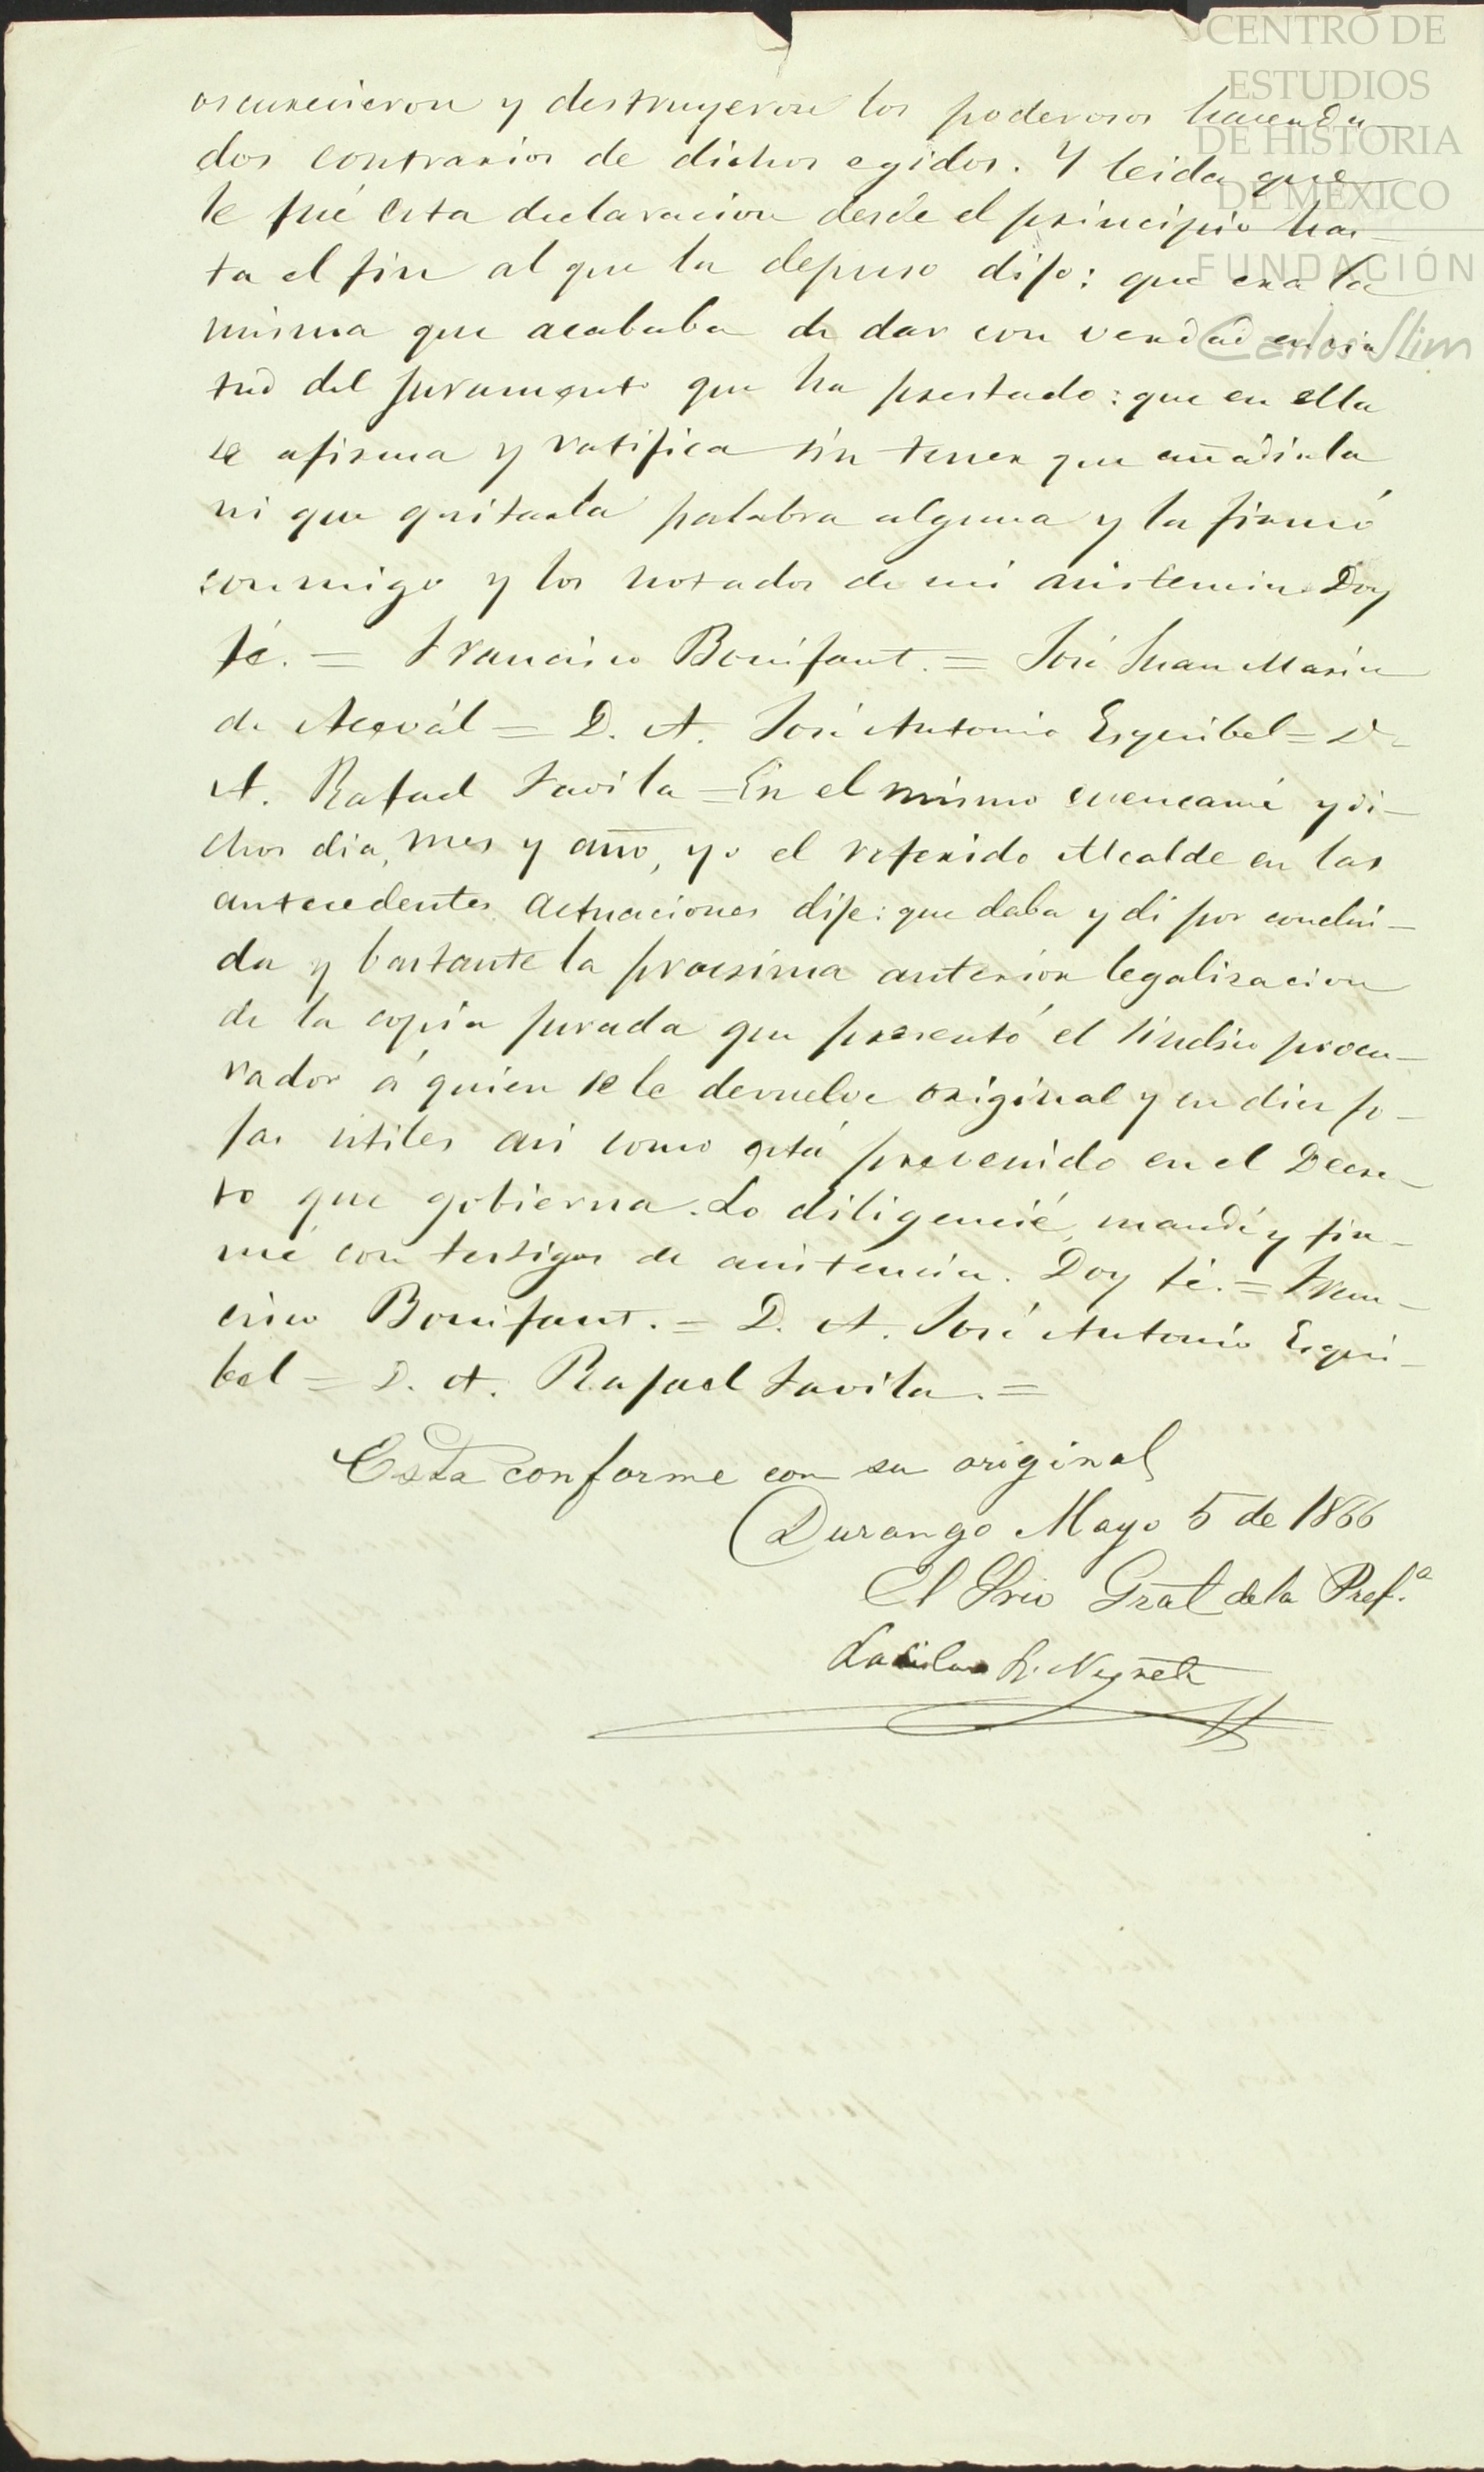 oscurecieron y destruyeron los poderosos hacenda-
dos contrarios de dichos egidos. Y leida que
le fué esta declaracion desde el principio has-
ta el fin al que la depuso dijo: que era la
misma que acababa de dar con verdad en vir
tud del juramento que ha prestado: que en ella
se afirma y ratifica sin tener que añadirla
ni que quitarla palabra alguna y la firmó
conmigo y los notados de mi asistencia Doy
fé. = Francisco Bonifant. = José Juan Maria
de Acevál = D. A. José Antonio Esquibel = D.
A. Rafael Favila = En el mismo cuencamé y di-
chos dia, mes y año, yo el referido Alcalde en las
antecedentes actuaciones dije: que daba y di por conclui-
da y bastante la procsima anterior legalisacion
de la copia jurada que presentó el sindico procu-
rador á quien se le devuelve original y en diez fo-
jas utiles asi como está prevenido en el Decre-
to que gobierna. Lo diligencié, mandé y fir-
mé con testigos de asistencia. Doy fé. = Fran-
cisco Bonifant. = D. A. José Antonio Esqui-
bel = D. A. Rafael Favila. =
Esta conforme con su original
Durango Mayo 5 de 1866
El Srio Gral de la Pref.ª
L. Negrete
CENTRO DE
ESTUDIOS
DE HISTORIA
DE MÉXICO
FUNDACIÓN
Carlos Slim